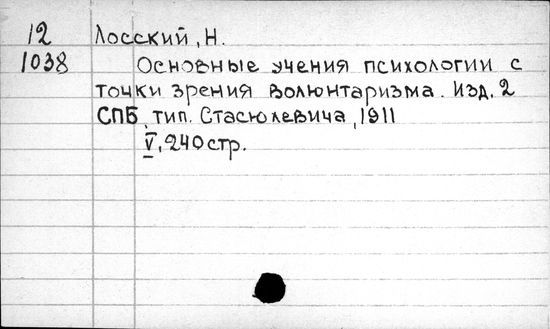 12 Лосский, Н.
1038 Основные учения психологии с
точки зрения волюнтаризма. Изд. 2
СПБ, тип. Стасюлевича, 1911
V, 240 стр.